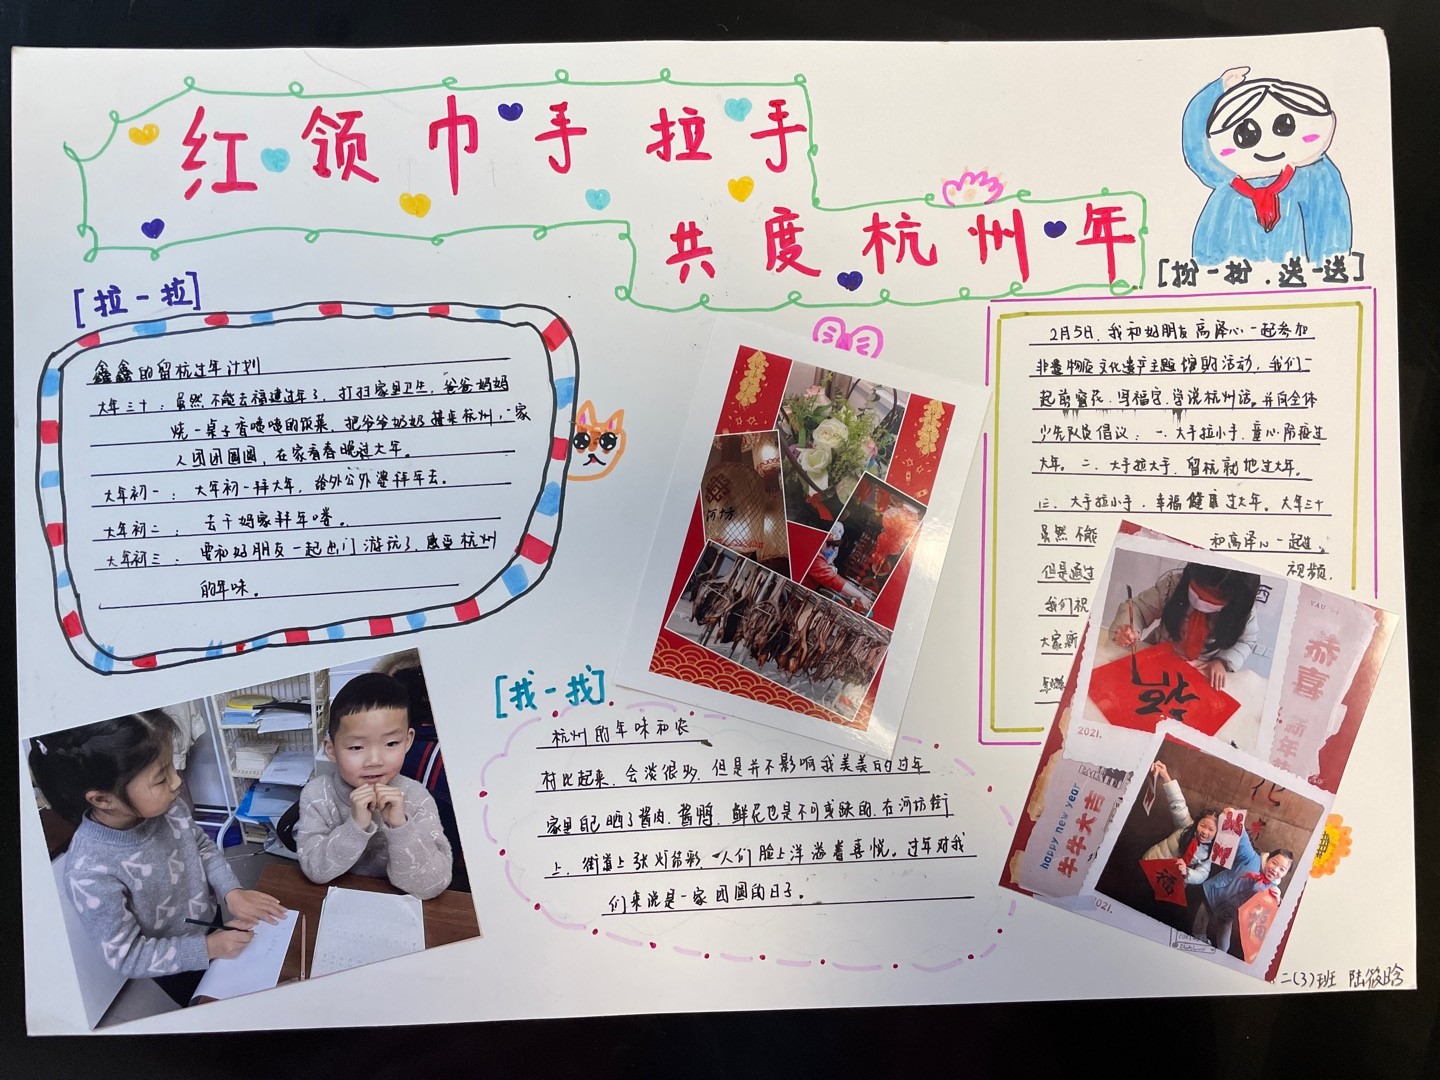 红领巾手拉手
共度杭州年
[拉一拉]
鑫鑫的留杭过年计划
大年三十：虽然不能去福建过年了，打扫家里卫生，爸爸妈妈
烧一桌子香喷喷的饭菜，把爷爷奶奶接来杭州，一家
人团团圆圆，在家看春晚过大年。
大年初一：大年初一拜大年，给外公外婆拜年去。
大年初二：去干妈家拜年喽。
大年初三：要和好朋友一起出门游玩了，感受杭州
的年味。
[扮一扮.送一送]
2月5日，我和好朋友高泽心一起参加
非遗物质文化遗产主题馆的活动，我们一
起剪窗花，写福字，学说杭州话。并向全体
少先队员倡议：一、大手拉小手，童心防疫过
大年。二、大手拉大手，留杭就地过大年。
三、大手拉小手，幸福健康过大年。大年三十
虽然不能 和高泽心一起过，
但是通过 视频，
我们祝
大家新
[找一找]
杭州的年味和农
村比起来，会淡很多，但是并不影响我美美的过年
家里自己晒了酱肉、酱鸭，鲜花也是不可或缺的，在河坊街
上，街道上张灯结彩，人们脸上洋溢着喜悦。过年对我
们来说是一家团圆的日子。
河坊
福
恭喜
新年
2021.
happy new year
牛牛大吉
化
福
福
2021.
二(3)班 陆筱晗